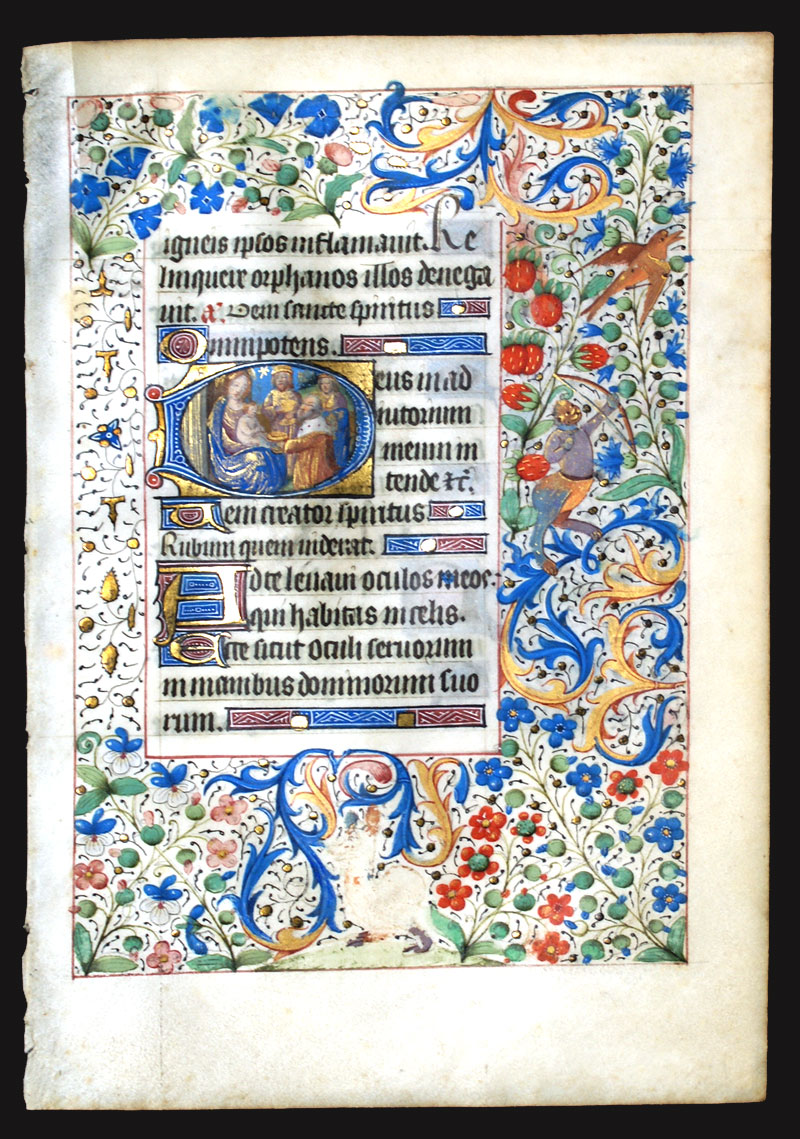 igneis ipsos inflamauit. Re
linquere orphanos illos denega
uit. a. Veni sancte spiritus
Omnipotens.
Deus in ad
iutorium
meum in
tende &c.
Veni creator spiritus
Rubum quem uiderat.
Ad te leuaui oculos meos:
qui habitas in celis.
Ecce sicut oculi seruorum
in manibus dominorum suo
rum.